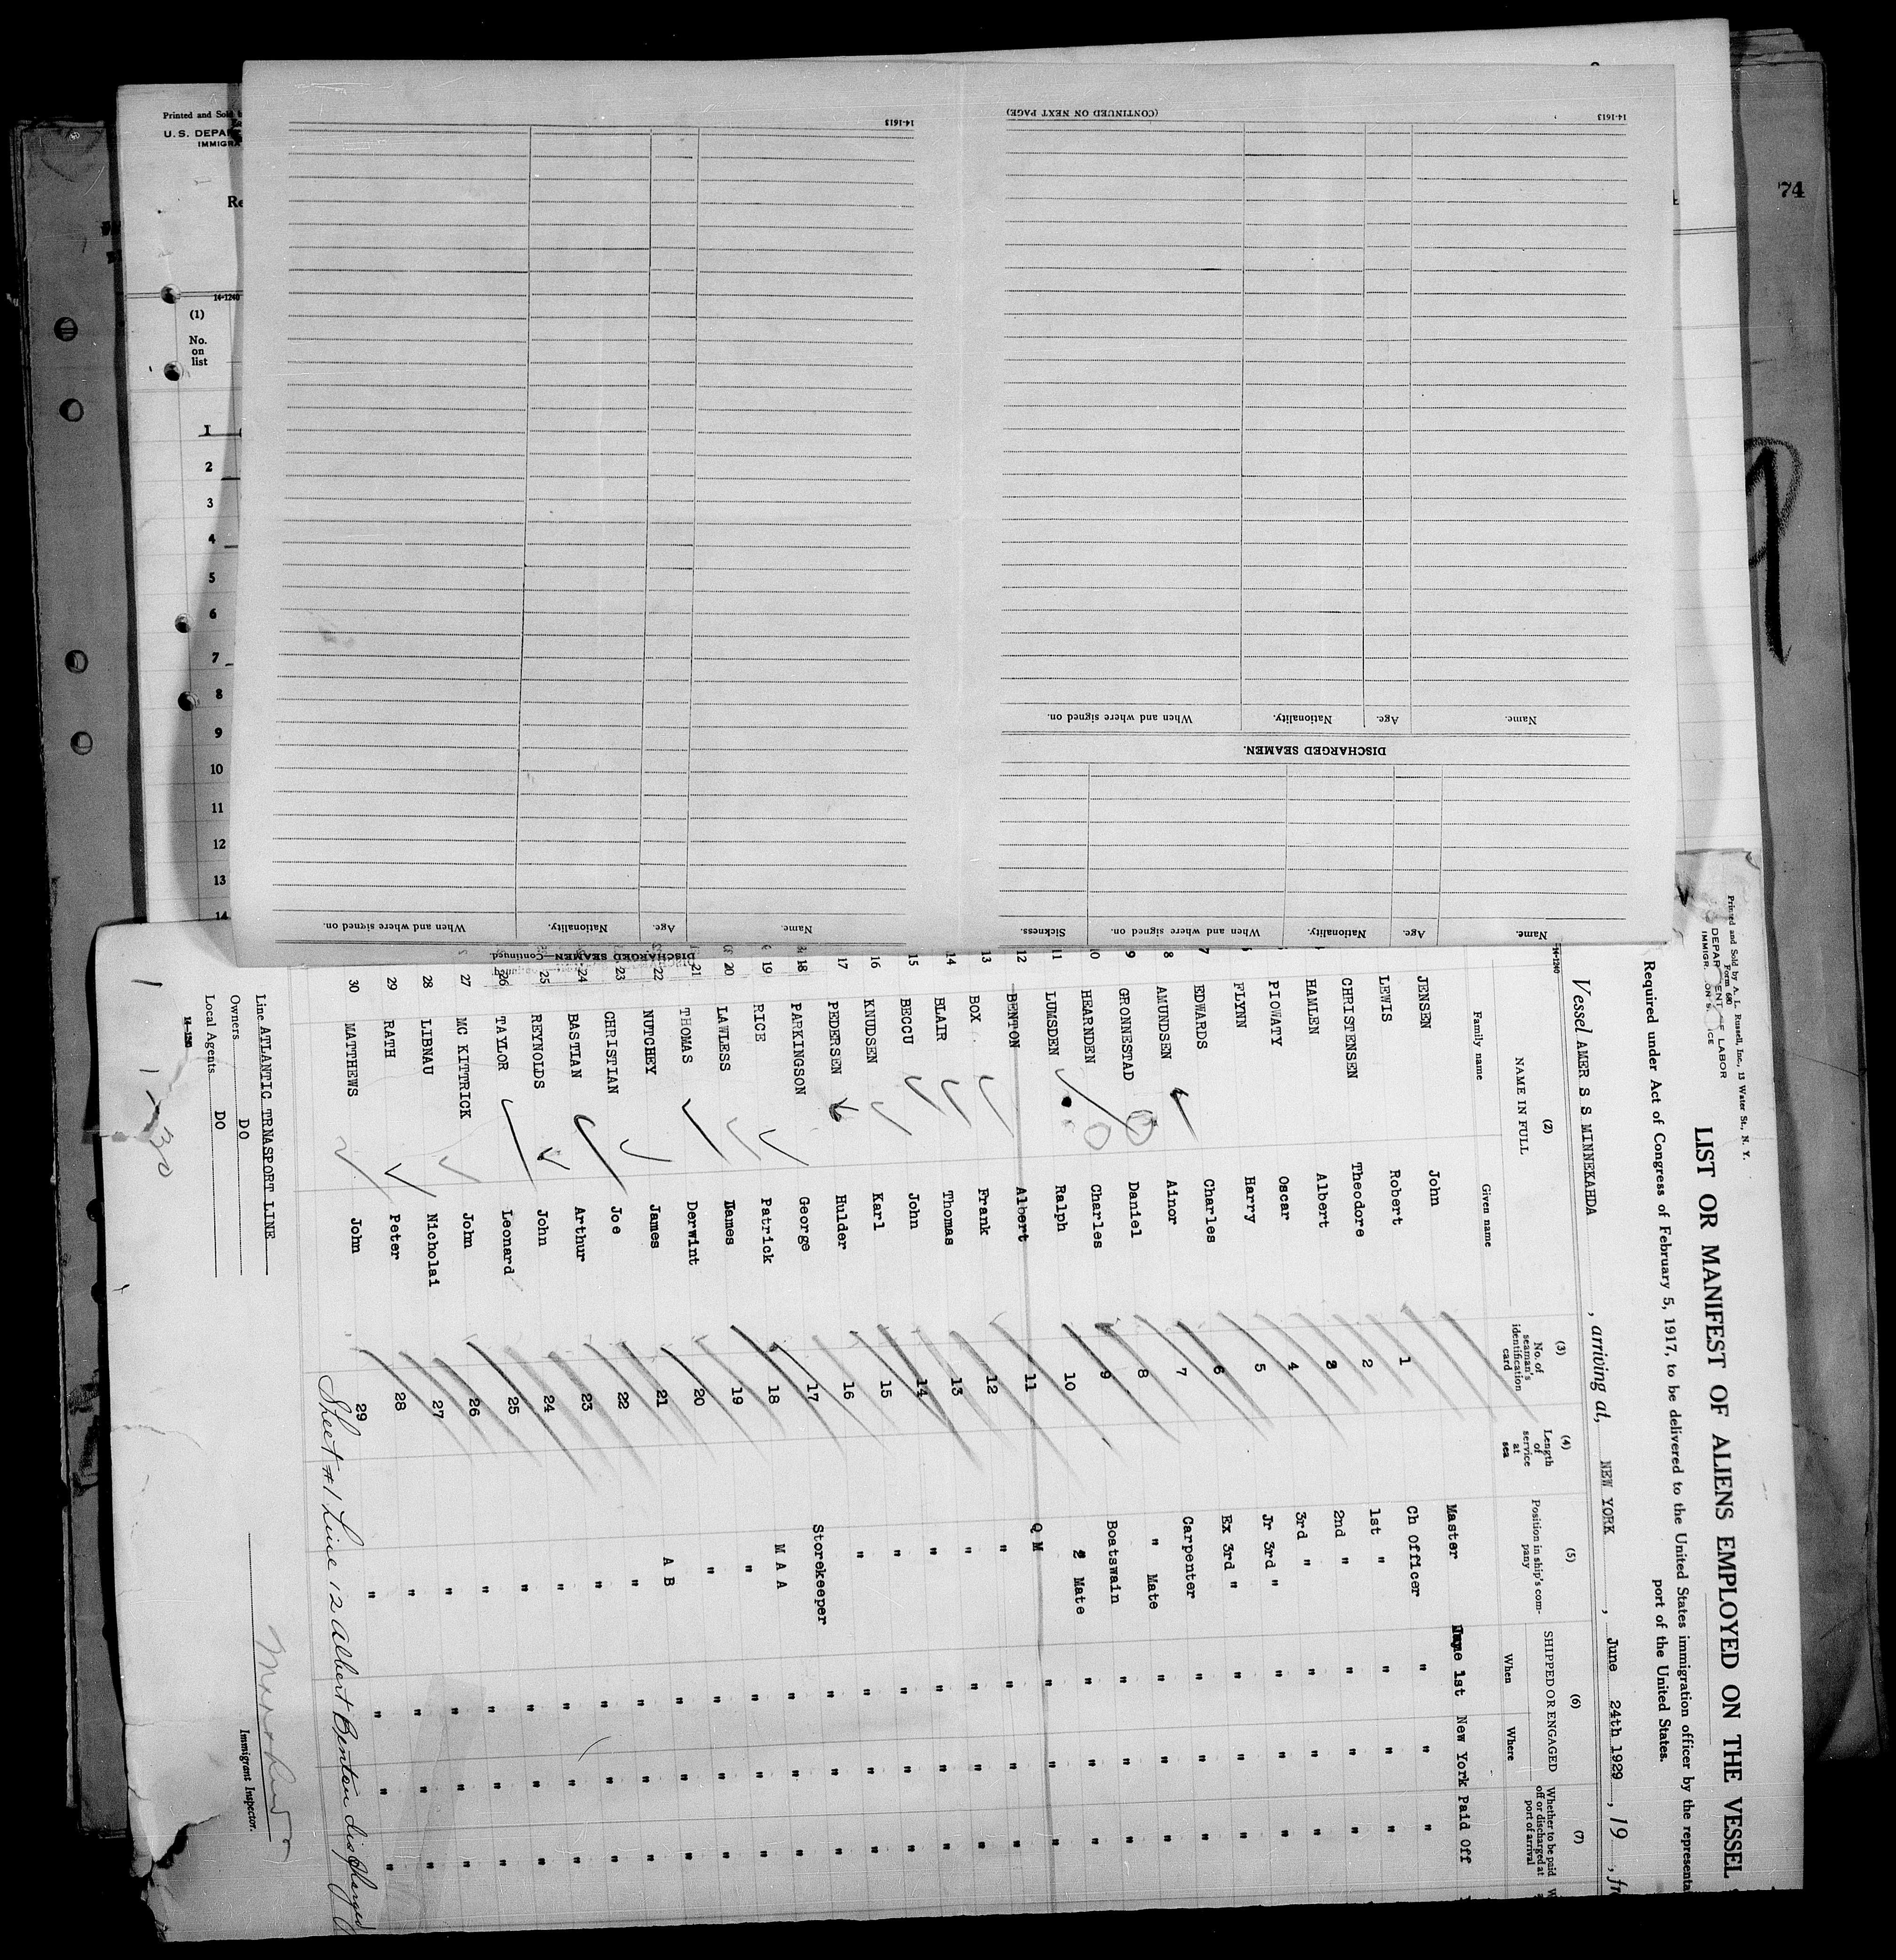 Printed and Sold b
U.S. DEPAR
IMMIGRA
Re
14-1240
(1)
No. on list
1
2
3
4
5
6
7
8
9
10
11
12
13
14
74
14-1613
(CONTINUED ON NEXT PAGE)
14-1613
Name. Age. Nationality. When and where signed on.
DISCHARGED SEAMEN.
Name. Age. Nationality. When and where signed on. Sickness.
Name. Age. Nationality. When and where signed on.
DISCHARGED SEAMEN—Continued.
Printed and Sold by A. L. Russell, Inc., 13 Water St., N. Y.
Form 680
DEPAR ENT OF LABOR
IMMIGR ON S ICE
LIST OR MANIFEST OF ALIENS EMPLOYED ON THE VESSEL
Required under Act of Congress of February 5, 1917, to be delivered to the United States immigration officer by the representa
port of the United States.
Vessel AMER S S MINNEKAHDA, arriving at, NEW YORK, June 24th 1929, 19, fr
14-1240
(2) (3) (4) (5) (6) (7)
NAME IN FULL
Family name Given name
No. of seaman's identification card
Length of service at sea
Position in ship's company
SHIPPED OR ENGAGED
When Where
Whether to be paid off or discharged at port of arrival
JENSEN John Master June 1st New York Paid Off
LEWIS Robert 1 Ch Officer " " "
CHRISTENSEN Theodore 2 1st " " " "
HAMLEN Albert 3 2nd " " " "
PIOWATY Oscar 4 3rd " " " "
FLYNN Harry 5 Jr 3rd " " " "
7 EDWARDS Charles 6 Ex 3rd " " " "
8 AMUNDSEN Ainor 7 Carpenter " " "
9 GRONNESTAD Daniel 8 " Mate " " "
10 HEARNDEN Charles 9 Boatswain " " "
11 LUMSDEN Ralph 10 2 Mate " " "
12 BENTON Albert 11 Q M " " "
13 BOX Frank 12 " " " "
14 BLAIR Thomas 13 " " " "
15 BECCU John 14 " " " "
16 KNUDSEN Karl 15 " " " "
17 PEDERSEN Hulder 16 " " " "
18 PARKINGSON George 17 Storekeeper " " "
19 RICE Patrick 18 M A A " " "
20 LAWLESS James 19 " " " "
21 THOMAS Derwint 20 " " " "
22 NUTCHEY James 21 A B " " "
23 CHRISTIAN Joe 22 " " " "
24 BASTIAN Arthur 23 " " " "
25 REYNOLDS John 24 " " " "
26 TAYLOR Leonard 25 " " " "
27 MC KITTRICK John 26 " " " "
28 LIBNAU Nicholai 27 " " " "
29 RATH Peter 28 " " " "
30 MATTHEWS John 29 " " " "
Sheet #1 Line 12 Albert Benton discharged
Line ATLANTIC TRNASPORT LINE
Owners DO
Local Agents DO
14-1240
1-30
Immigrant Inspector.